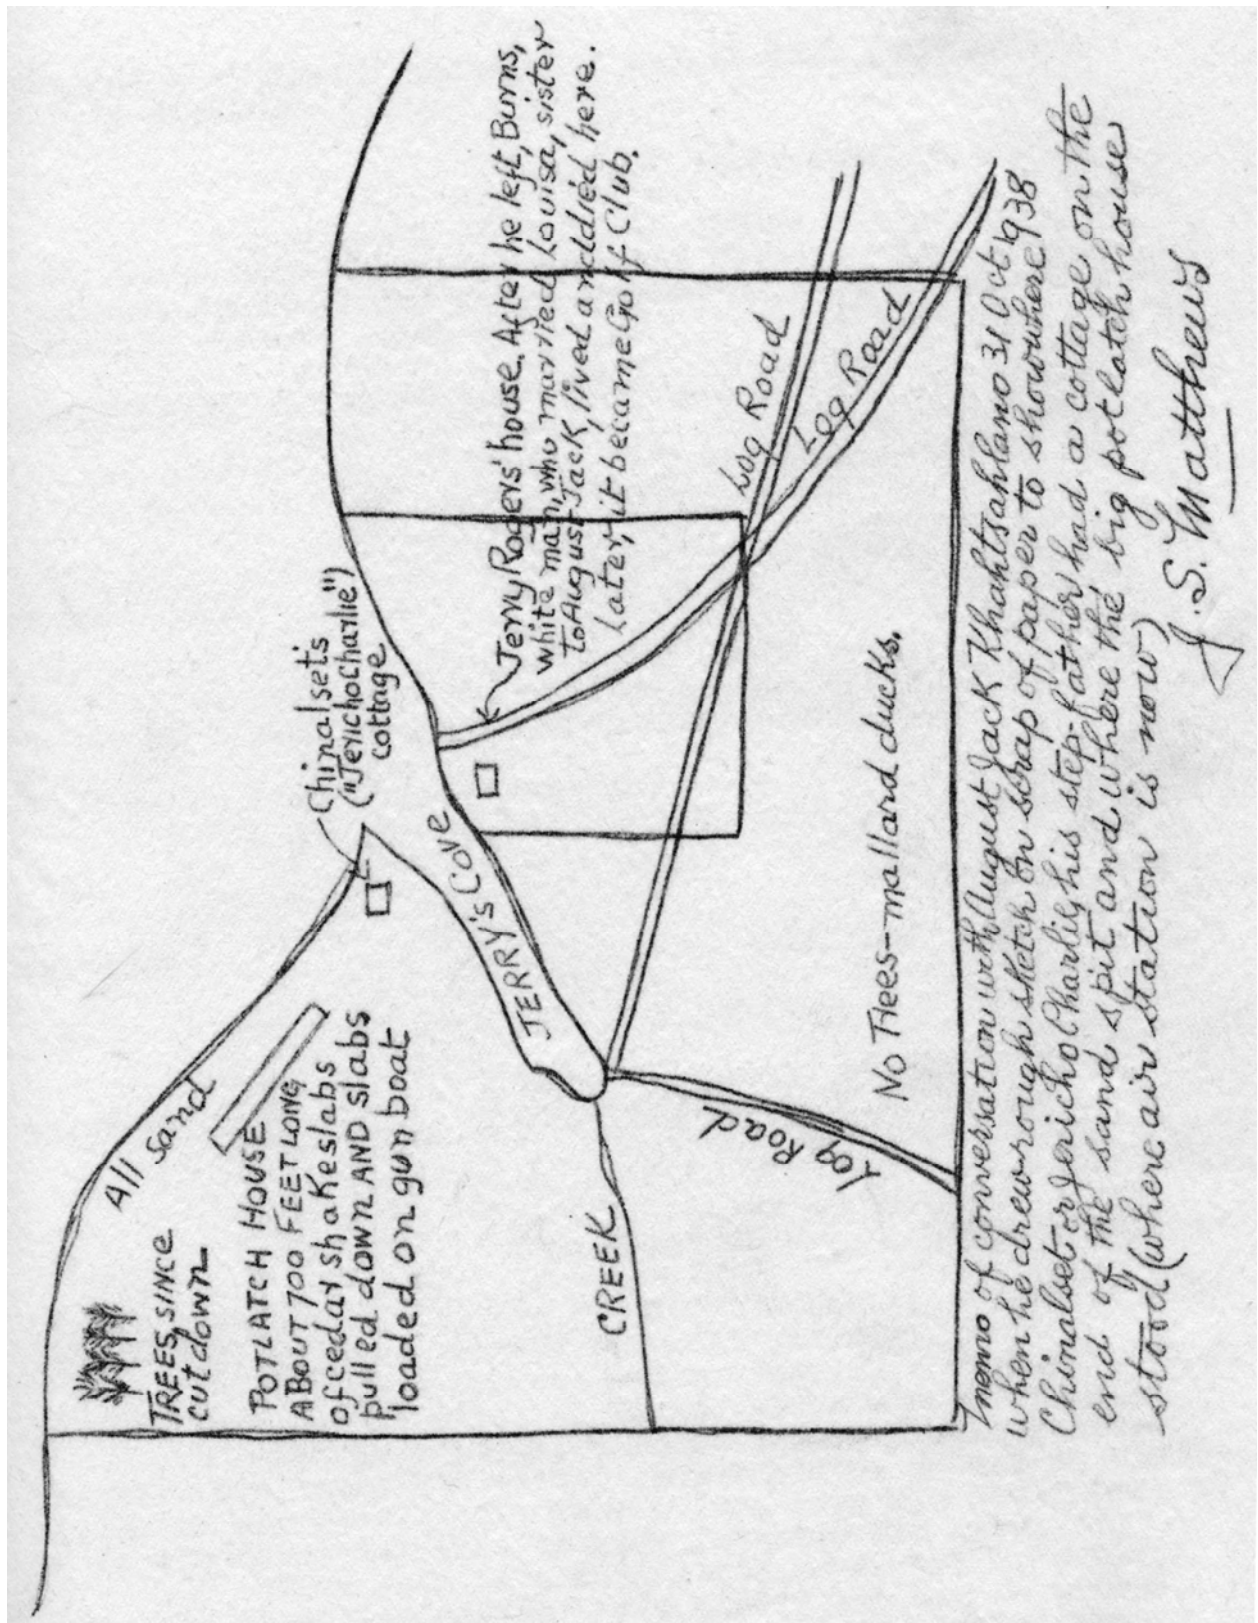 TREES, SINCE
cut down
All Sand
POTLATCH HOUSE
ABOUT 700 FEET LONG
of cedar shake slabs
pulled down AND slabs
loaded on gun boat
Chinalset's
("Jericho Charlie")
Cottage
JERRY'S COVE
Jerry Rogers' house. After he left, Burns,
white man, who married Louisa, sister
to August Jack, lived and died here.
Later, it became Golf Club.
CREEK
Log Road
Log Road
Log Road
No Trees-mallard ducks.
Memo of conversation with August Jack Khahtsahlano 31 Oct 1938
when he drew rough sketch on scrap of paper to show where
Chinalset or Jericho Charlie, his step-father had a cottage on the
end of the sand spit and where the big potlatch house
stood (where air station is now)
J.S. Matthews